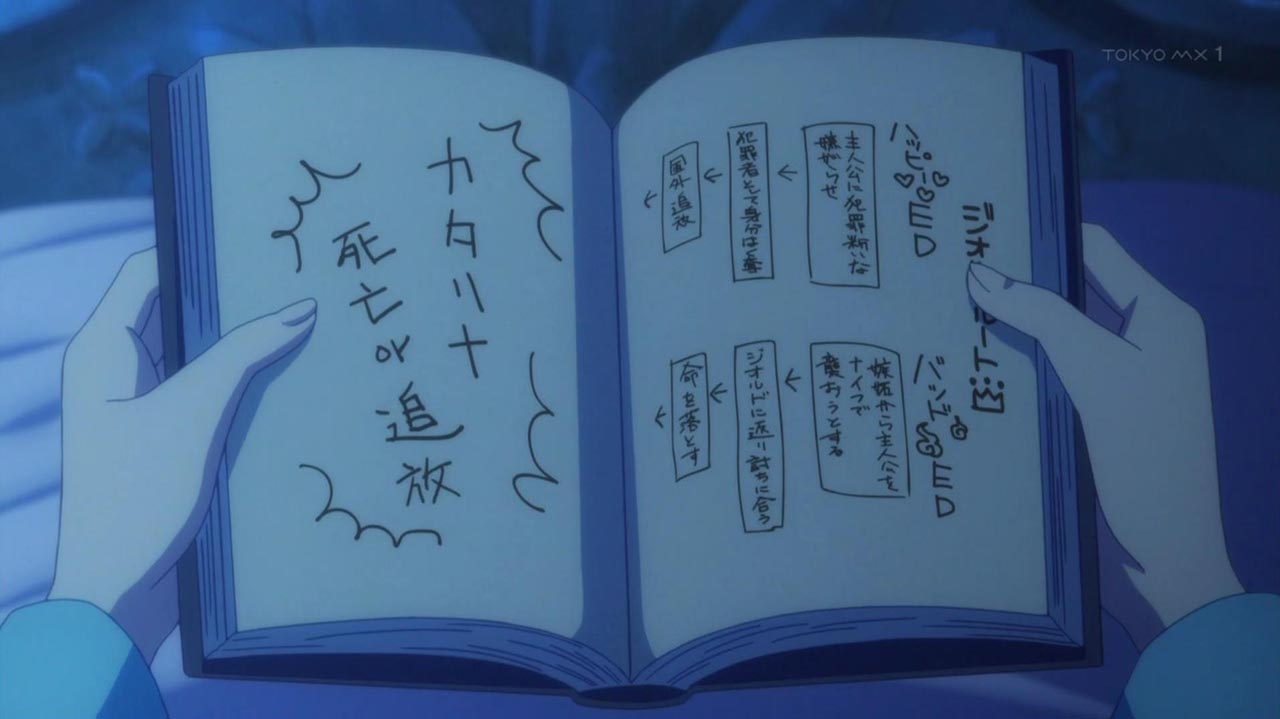 TOKYO MX 1
ジオルルート
ハッピーED
主人公に犯罪断いな
嫌がらせ
犯罪者として身分はく奪
国外追放
バッドED
嫉妬から主人公を
ナイフで
襲おうとする
ジオルドに返り討ちに合う
命を落とす
カタリナ
死亡or追放